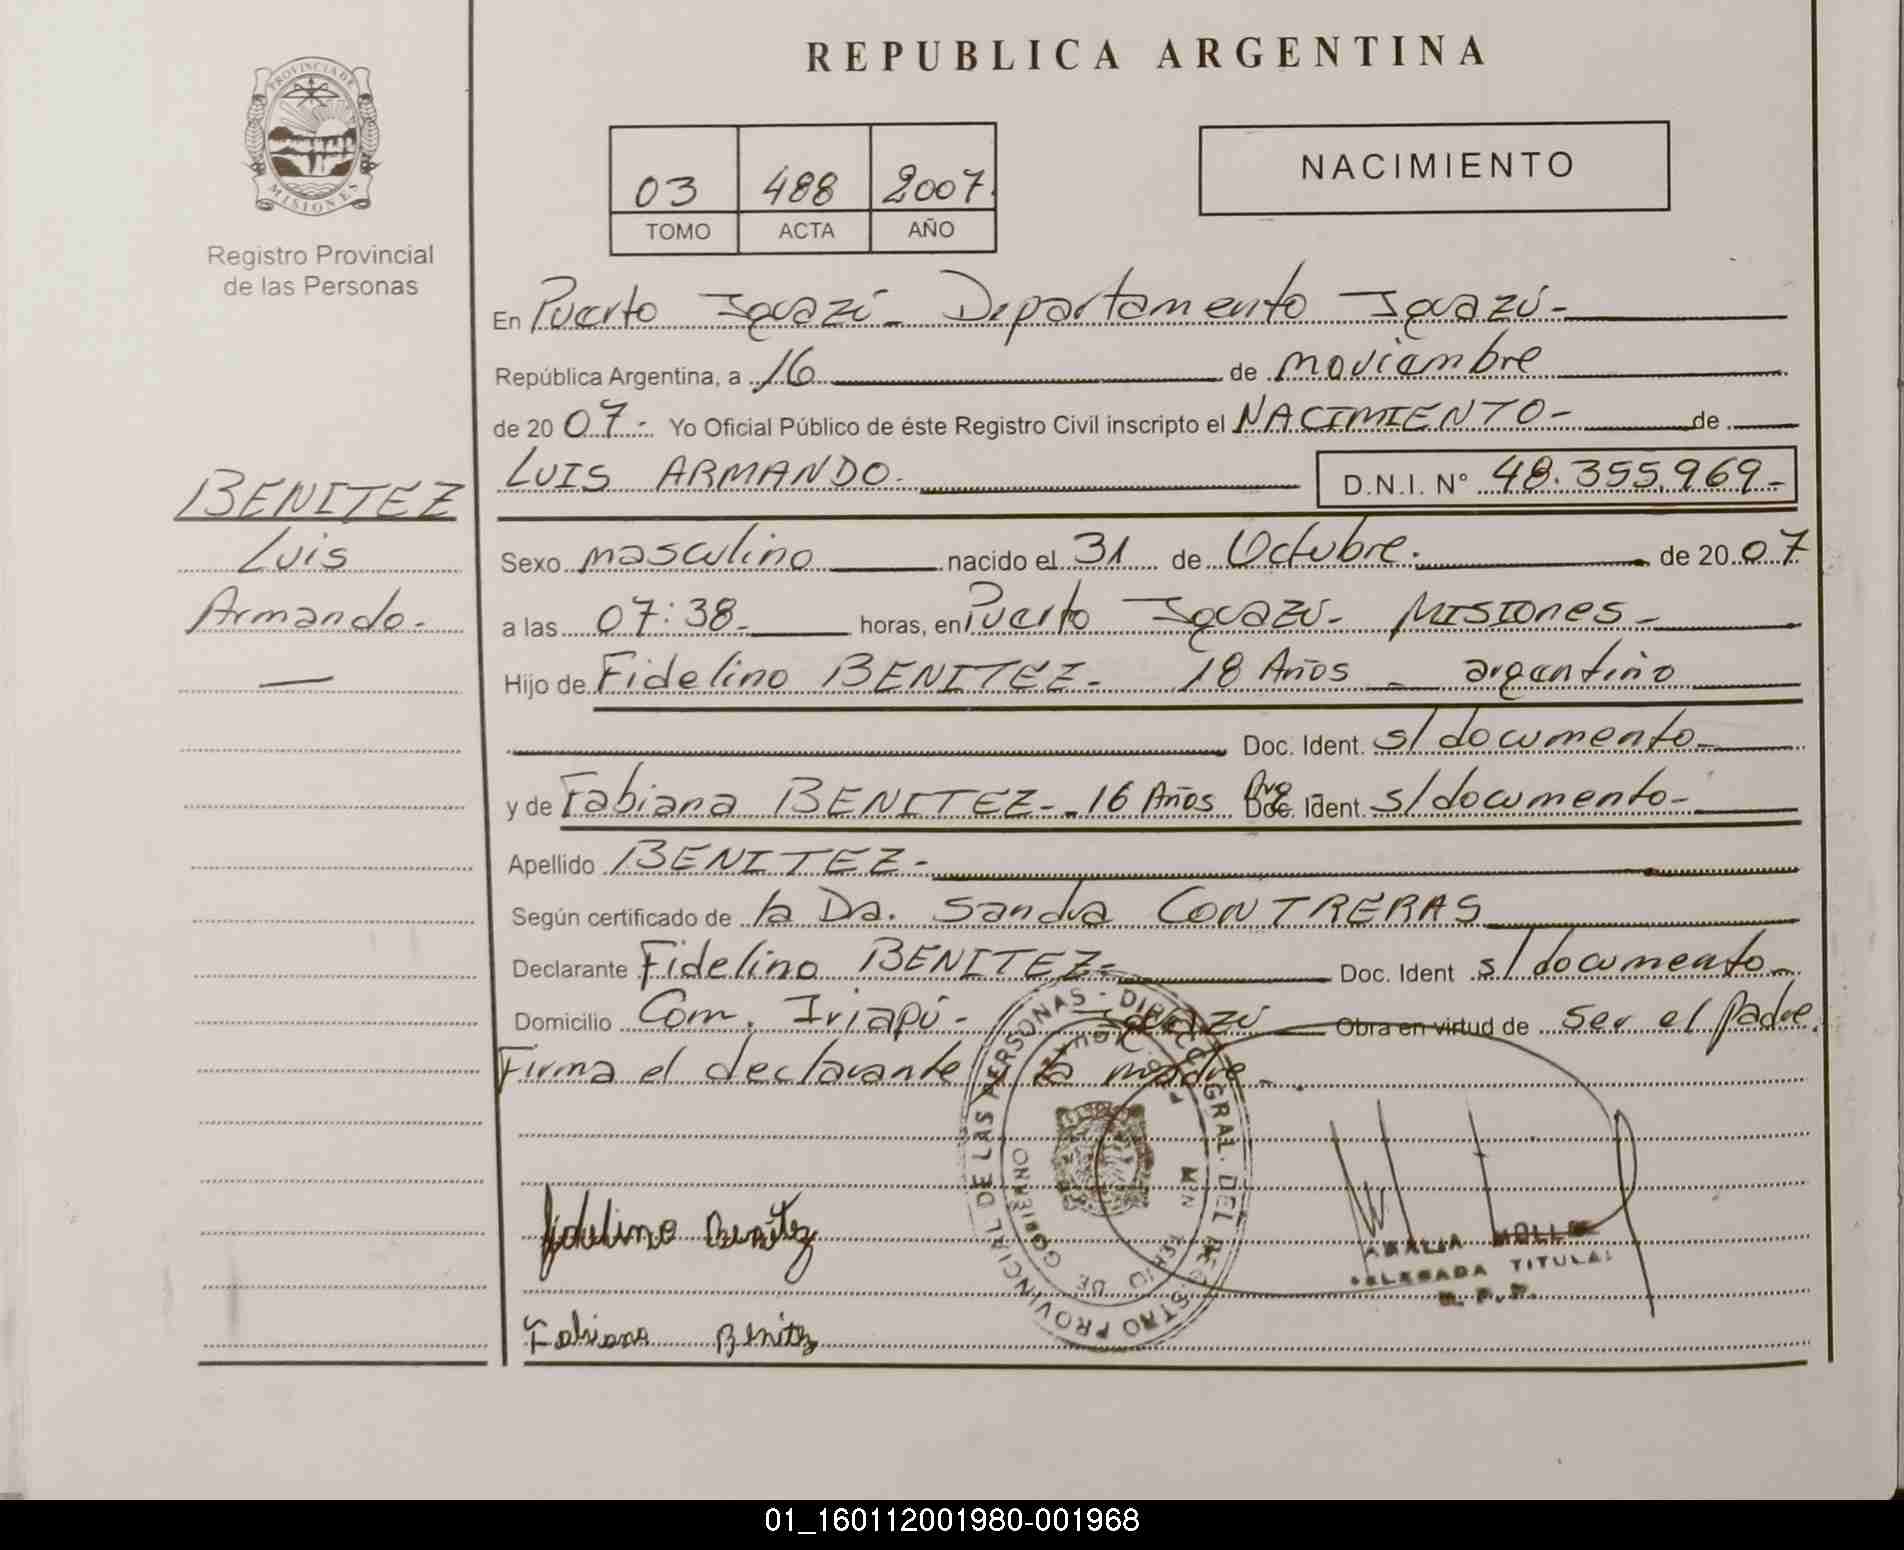 REPUBLICA ARGENTINA
PROVINCIA DE
MISIONES
Registro Provincial
de las Personas
03 488 2007.
TOMO ACTA AÑO
NACIMIENTO
En Puerto Iguazú - Departamento Iguazú -
República Argentina, a 16 de noviembre
de 20 07.- Yo Oficial Público de éste Registro Civil inscripto el NACIMIENTO - de
LUIS ARMANDO. D.N.I. N° 48.355.969-
BENITEZ
Luis
Armando.-
Sexo masculino nacido el 31 de Octubre. de 20 07
a las 07:38 horas, en Puerto Iguazú - MISIONES -
Hijo de Fidelino BENITEZ - 18 Años - argentino
Doc. Ident. s/documento-
y de Fabiana BENITEZ - 16 Años Arg Doc. Ident. s/documento-
Apellido BENITEZ -
Según certificado de la Dra. Sandra CONTRERAS
Declarante Fidelino BENITEZ - Doc. Ident s/documento-
Domicilio Com. Iriapú - Iguazú Obra en virtud de ser el padre.
Firma el declarante y la madre -.
REGISTRO PROVINCIAL DE LAS PERSONAS - DIRECC. GRAL. DEL
GOBIERNO
Fidelino Benítez
MOLL
DELEGADA TITULAR
R. P. P.
Fabiana Benitez
01_160112001980-001968